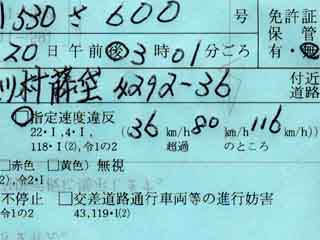 1530 さ 600 号 免許証
保管
20 日午前 後 3 時 01 分ごろ 有・無
川村藤埜 4292-36 付近
道路
指定速度違反 (36 km/h 80 km/h 116 km/h)
22・I,4・I,
118・I(2),令1の2 超過 のところ
□赤色 □黄色) 無視
2),令2・I
不停止 □交差道路通行車両等の進行妨害
令1の2 43,119・I(2)